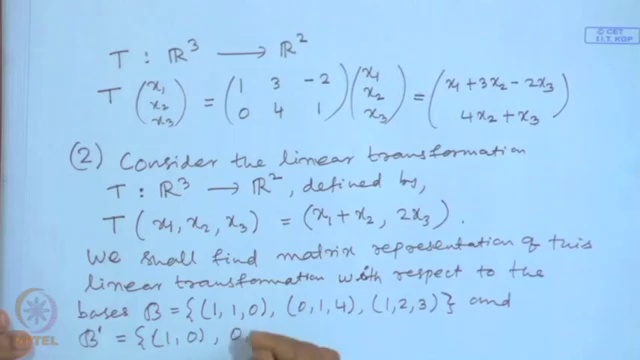 © CET
I.I.T. KGP
T : ℝ³ ⟶ ℝ²
T (x₁ x₂ x₃) = (1 3 -2 / 0 4 1) (x₁ x₂ x₃) = (x₁ + 3x₂ - 2x₃ / 4x₂ + x₃)
(2) Consider the linear transformation
T : ℝ³ ⟶ ℝ², defined by,
T (x₁, x₂, x₃) = (x₁ + x₂, 2x₃).
We shall find matrix representation of this
linear transformation with respect to the
bases B = {(1, 1, 0), (0, 1, 4), (1, 2, 3)} and
B' = {(1, 0), 0
NPTEL